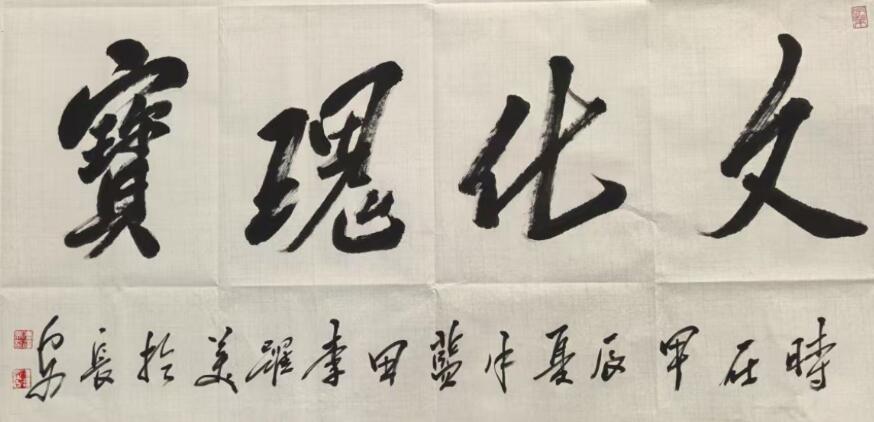 文化瑰寶
時在甲辰夏月藍田李躍美於長安